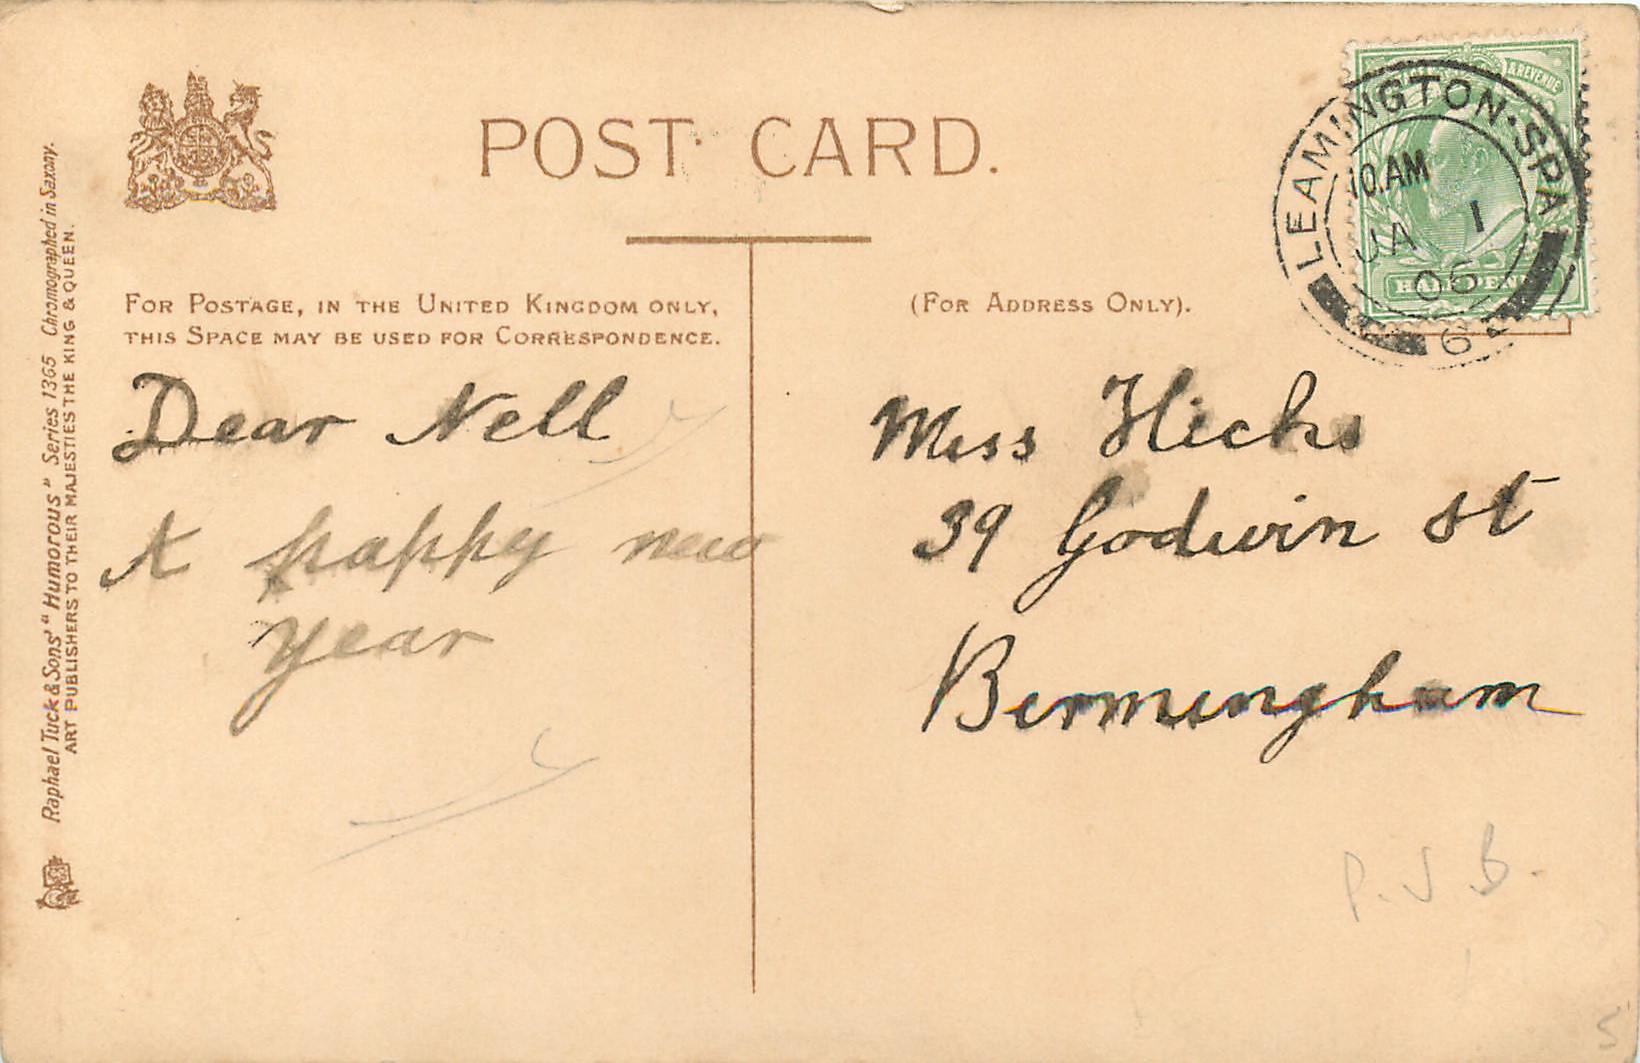 POST CARD.
FOR POSTAGE, IN THE UNITED KINGDOM ONLY,
THIS SPACE MAY BE USED FOR CORRESPONDENCE.
(FOR ADDRESS ONLY).
& REVENUE
HALFPENNY
LEAMINGTON·SPA
10.AM
JA 1
06
Dear Nell
A happy new
year
Miss Hicks
39 Godwin St
Birmingham
P.J B.
5
Raphael Tuck & Sons' "Humorous" Series 1365 Chromographed in Saxony.
ART PUBLISHERS TO THEIR MAJESTIES THE KING & QUEEN.